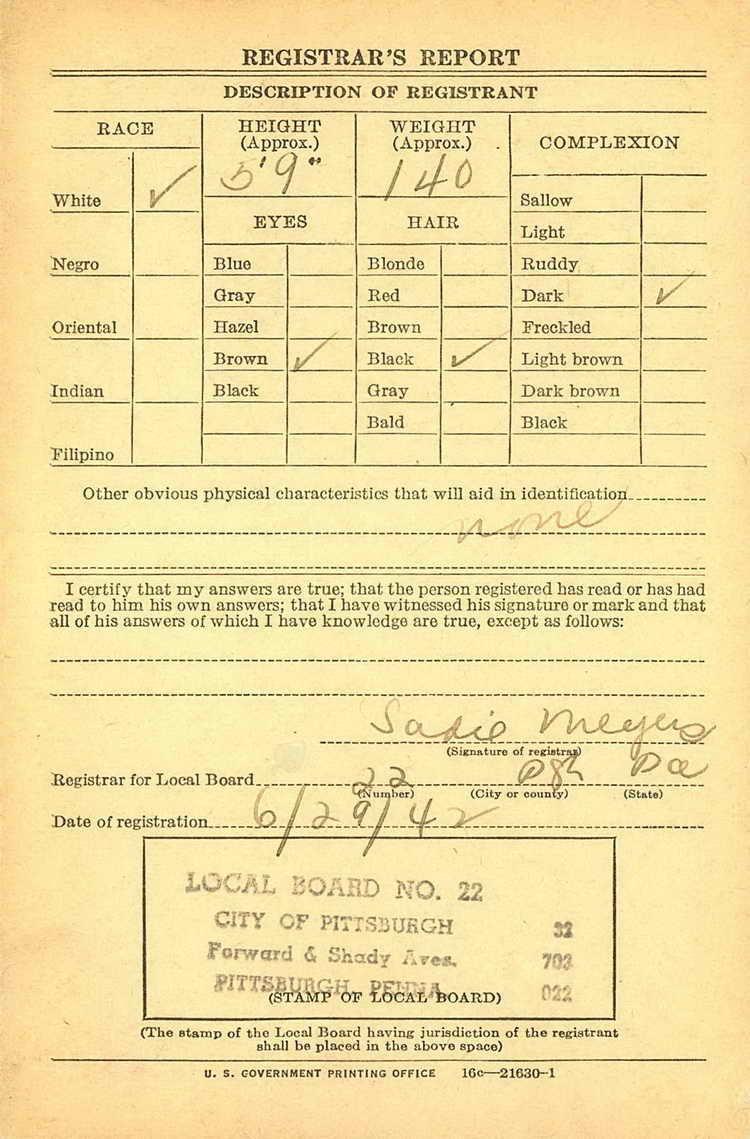 REGISTRAR'S REPORT
DESCRIPTION OF REGISTRANT
RACE HEIGHT (Approx.) WEIGHT (Approx.) COMPLEXION
5'9" 140
White ✓ Sallow
EYES HAIR Light
Negro Blue Blonde Ruddy
Gray Red Dark ✓
Oriental Hazel Brown Freckled
Brown ✓ Black ✓ Light brown
Indian Black Gray Dark brown
Bald Black
Filipino
Other obvious physical characteristics that will aid in identification
none
I certify that my answers are true; that the person registered has read or has had
read to him his own answers; that I have witnessed his signature or mark and that
all of his answers of which I have knowledge are true, except as follows:
Sadie Meyers
(Signature of registrar)
Registrar for Local Board 22 Pgh Pa
(Number) (City or county) (State)
Date of registration 6/29/42
LOCAL BOARD NO. 22
CITY OF PITTSBURGH 32
Forward & Shady Aves. 703
PITTSBURGH, PENNA. 022
(STAMP OF LOCAL BOARD)
(The stamp of the Local Board having jurisdiction of the registrant
shall be placed in the above space)
U. S. GOVERNMENT PRINTING OFFICE 16c—21630-1